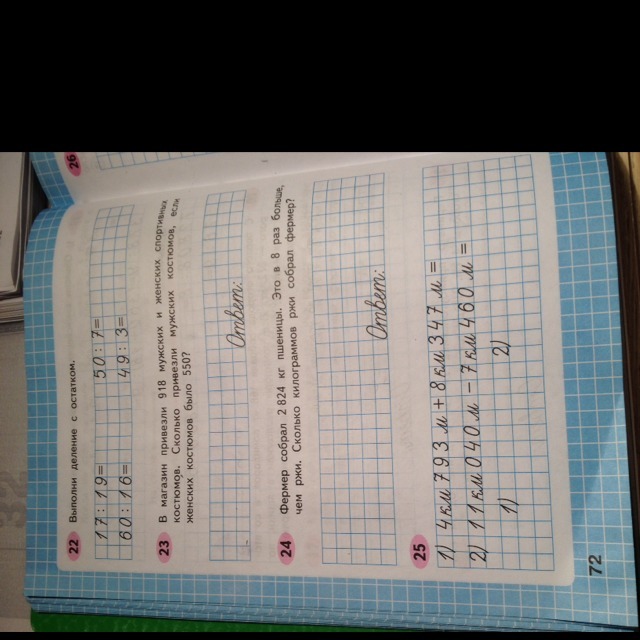 26
22 Выполни деление с остатком.
17:19= 50:7=
60:16= 49:3=
23 В магазин привезли 918 мужских и женских спортивных
костюмов. Сколько привезли мужских костюмов, если
женских костюмов было 550?
Ответ:
24 Фермер собрал 2 824 кг пшеницы. Это в 8 раз больше,
чем ржи. Сколько килограммов ржи собрал фермер?
Ответ:
25 1) 4 км 793 м + 8 км 347 м =
2) 11 км 040 м − 7 км 460 м =
1) 2)
72